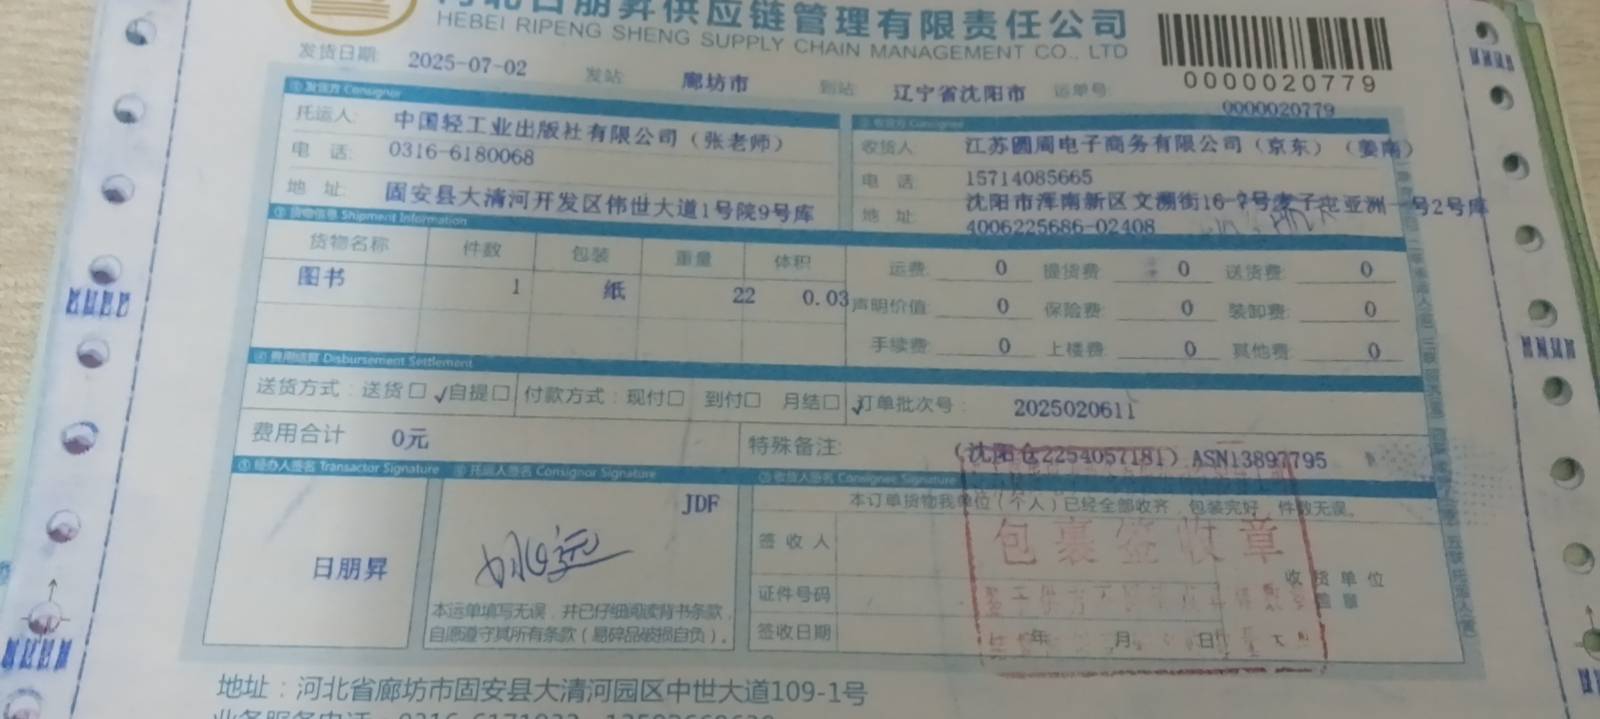 河北日朋昇供应链管理有限责任公司
HEBEI RIPENG SHENG SUPPLY CHAIN MANAGEMENT CO., LTD
0000020779
发货日期: 2025-07-02 发站: 廊坊市 到站: 辽宁省沈阳市 运单号: 0000020779
①发货方 Consignor
托运人: 中国轻工业出版社有限公司（张老师）
电 话: 0316-6180068
地 址: 固安县大清河开发区伟世大道1号院9号库
②收货方 Consignee
收货人 江苏圆周电子商务有限公司（京东）（姜南）
电 话 15714085665
地 址 沈阳市浑南新区文溯街16-7号麦子屯亚洲一号2号库
4006225686-02408
③货物信息 Shipment Information
货物名称 件数 包装 重量 体积
图书 1 纸 22 0.03
运费: 0 提货费: 0 送货费: 0
声明价值: 0 保险费: 0 装卸费: 0
手续费: 0 上楼费: 0 其他费: 0
④费用结算 Disbursement Settlement
送货方式：送货☐ ✓自提☐ 付款方式：现付☐ 到付☐ 月结☐ ✓订单批次号： 2025020611
费用合计 0元
特殊备注: (沈阳仓2254057181) ASN13897795
①经办人签名 Transactor Signature
日朋昇
②托运人签名 Consignor Signature
JDF
本运单填写无误，并已仔细阅读背书条款，
自愿遵守其所有条款（易碎品破损自负）。
③收货人签名 Consignee Signature
本订单货物我单位（个人）已经全部收齐，包装完好，件数无误。
签收人
证件号码
签收日期 年 月 日
收货单位
盖章
包裹签收章
地址：河北省廊坊市固安县大清河园区中世大道109-1号